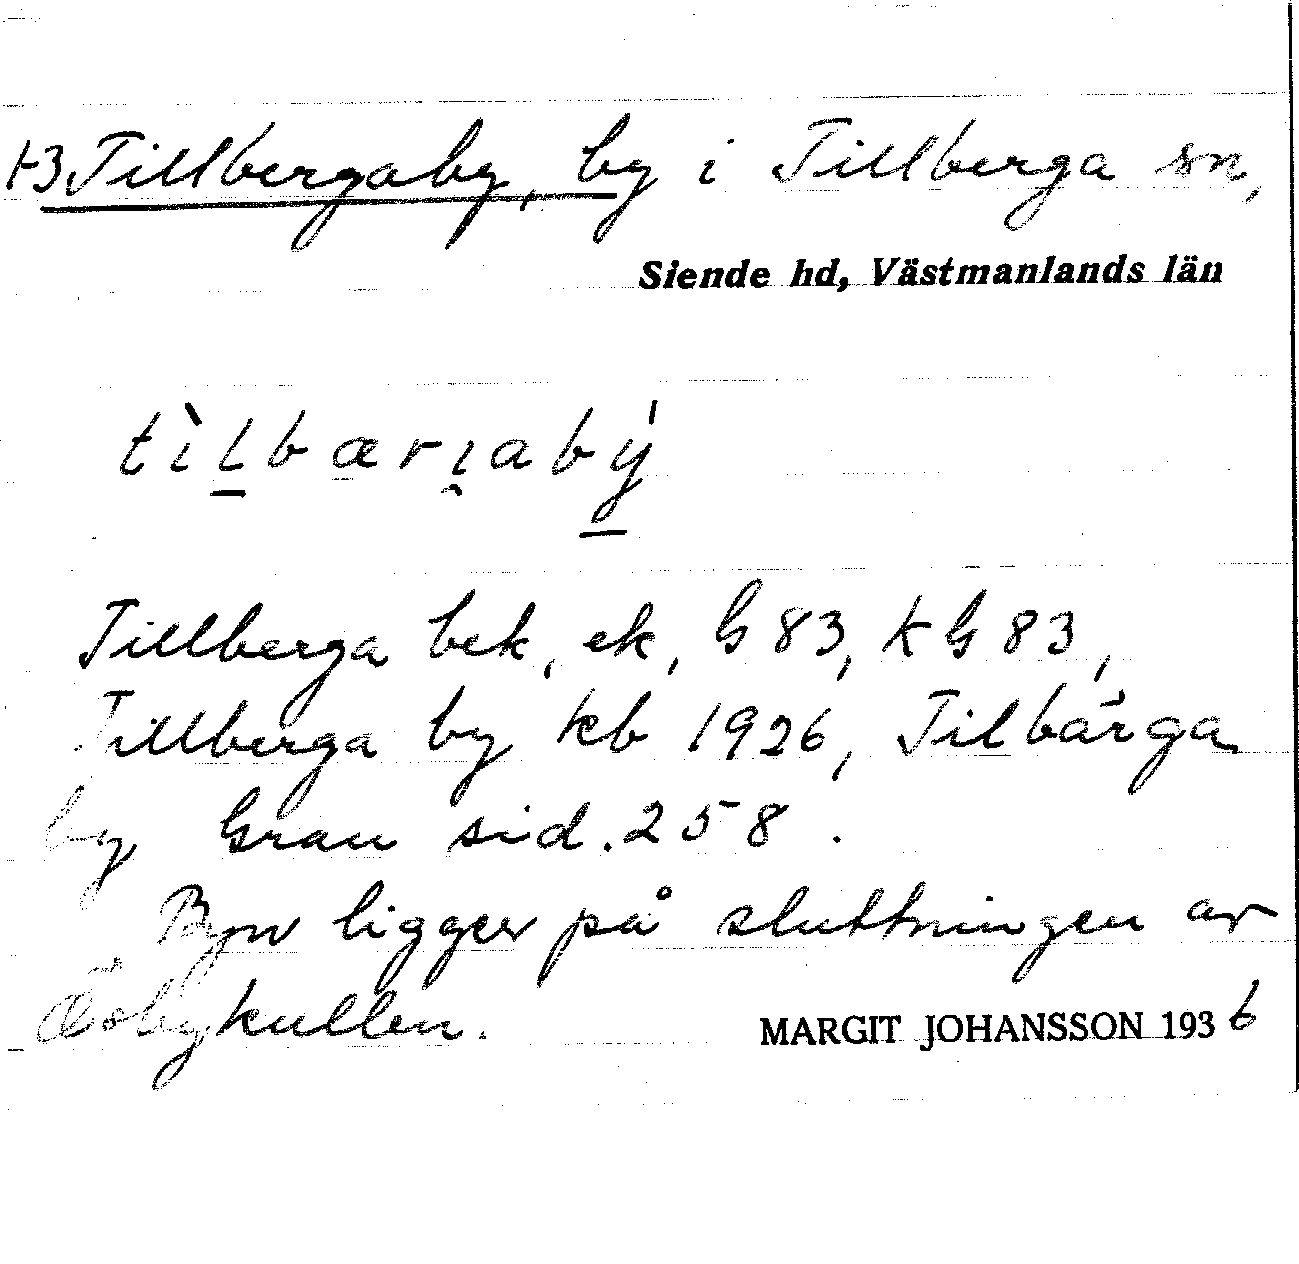 1-3 Tillbergaby, by i Tillberga sn,
Siende hd, Västmanlands län
tìlbæri̯abý
Tillberga bek, ek, G 83, KG 83,
Tillberga by kb 1926, Tilbärga
by Grau sid. 258.
Byn ligger på sluttningen av
MARGIT JOHANSSON 1936